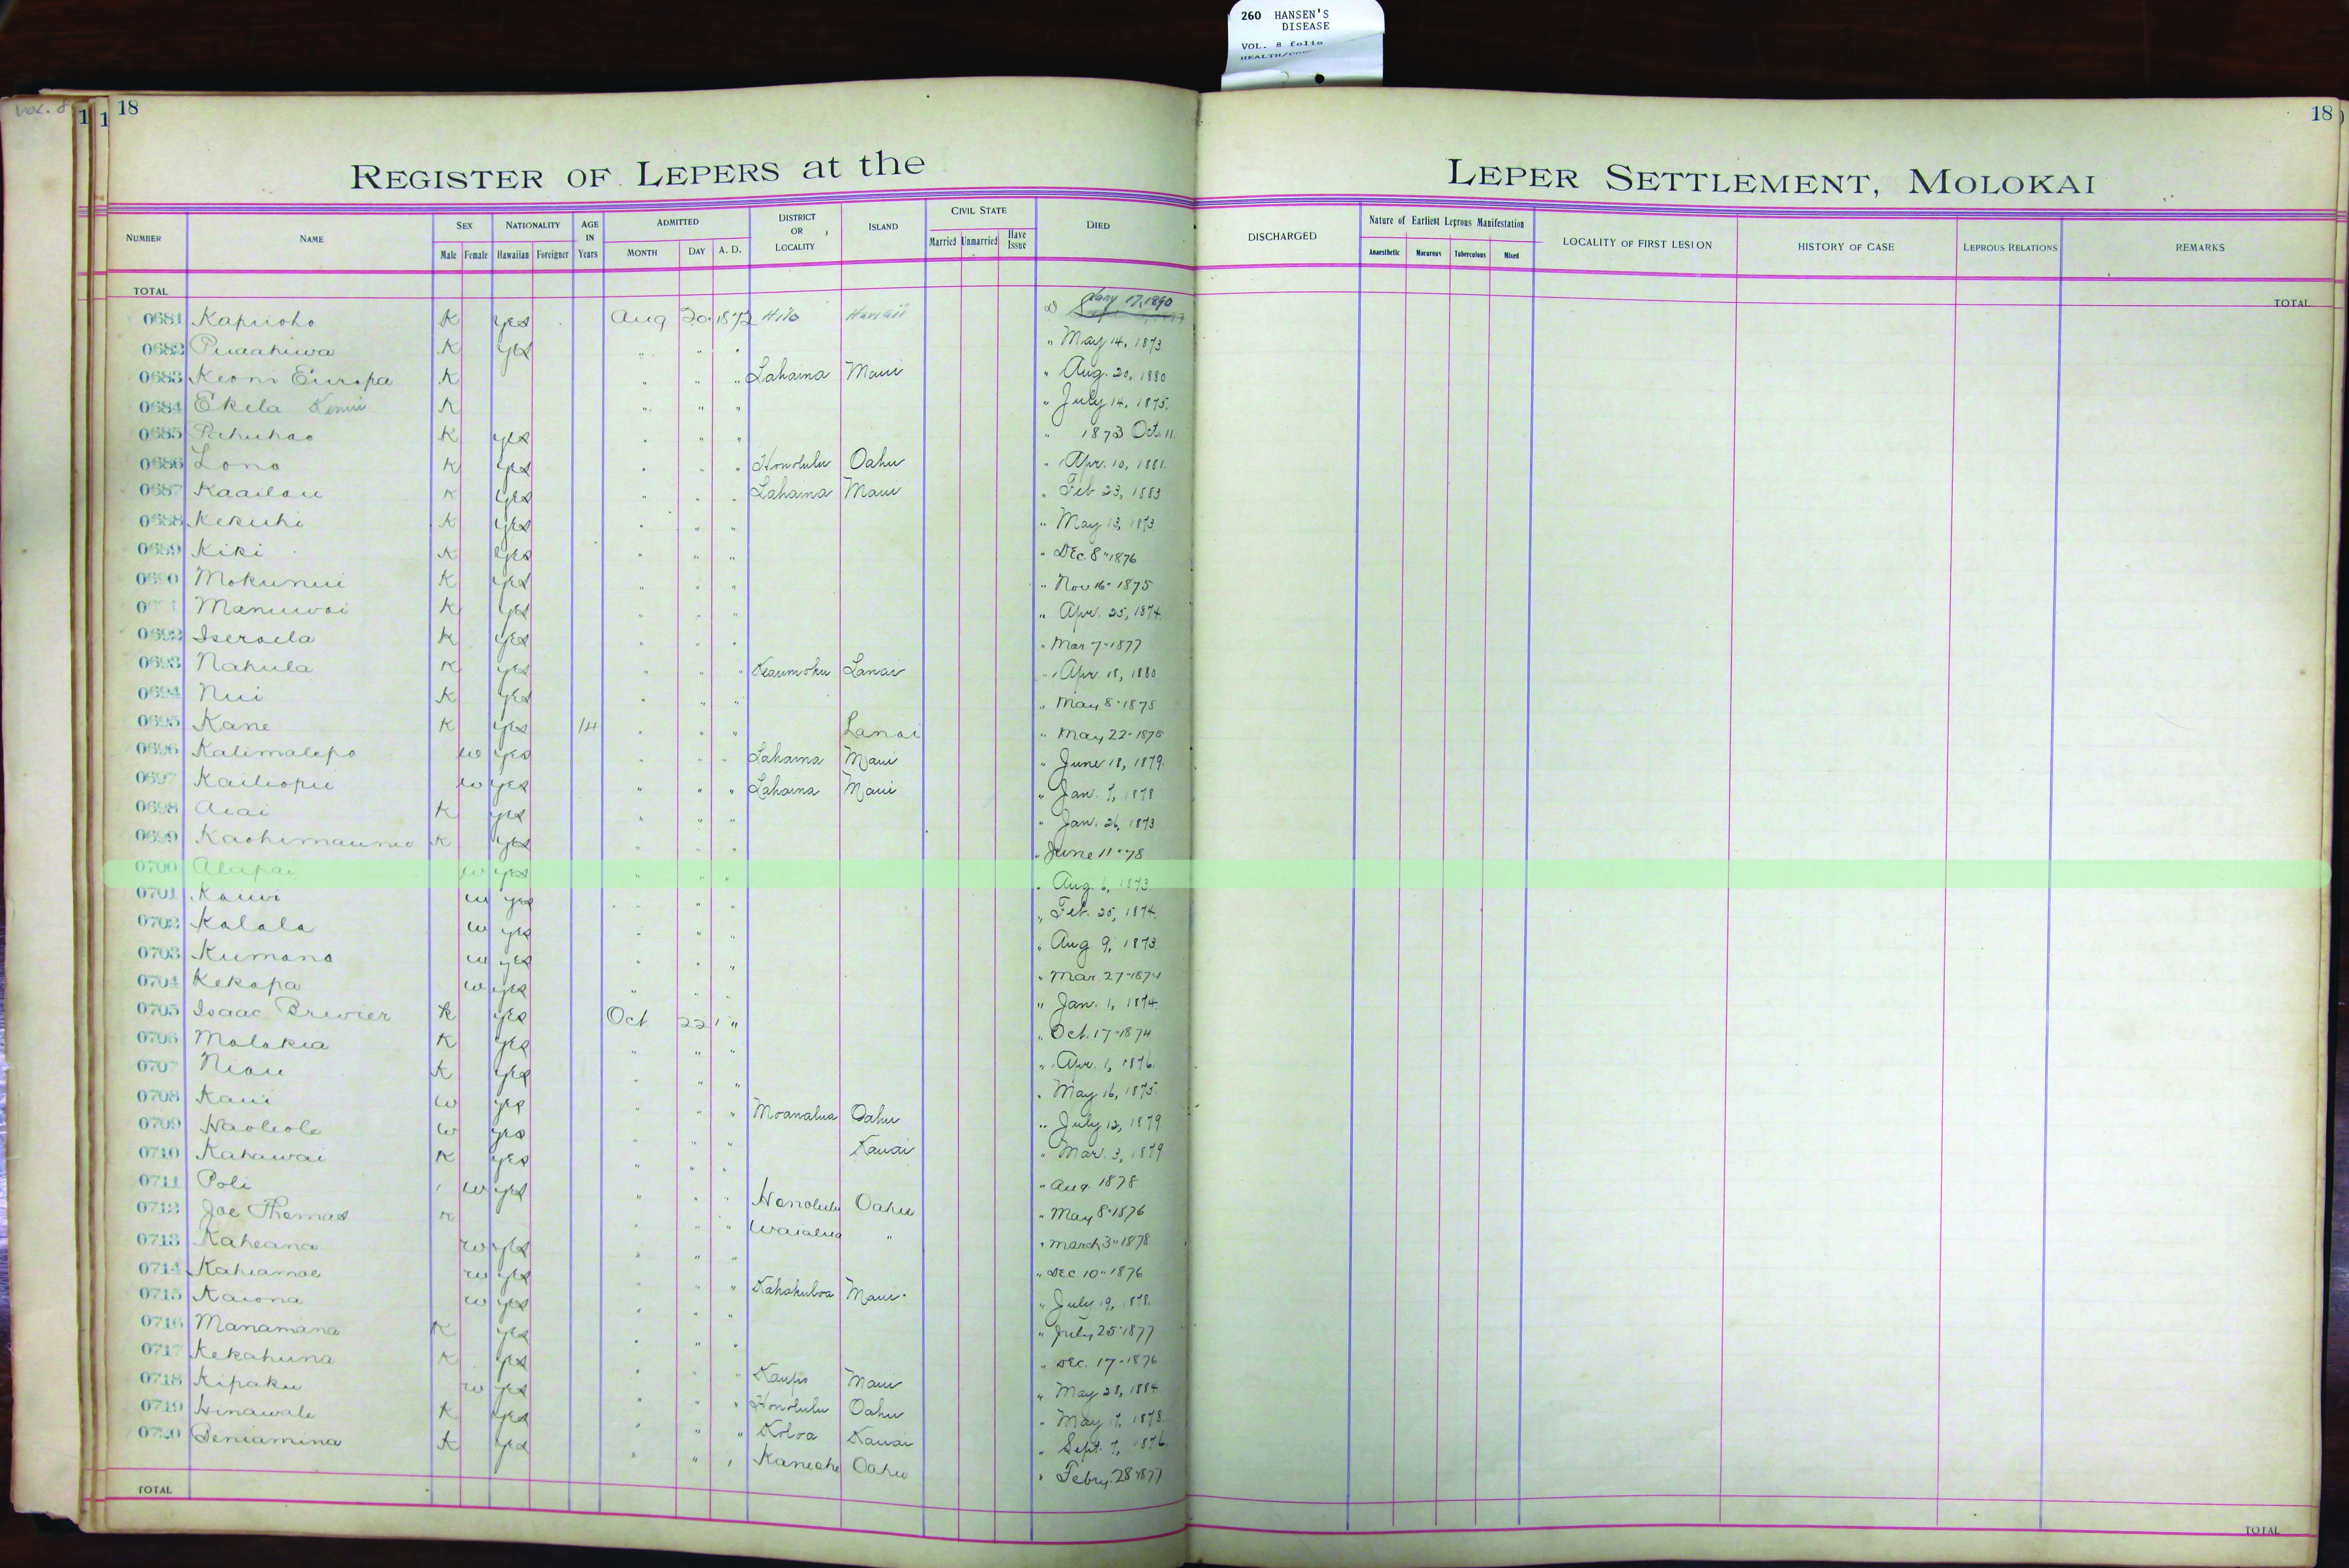 260 HANSEN'S
DISEASE
VOL. 8 folio
VOL. 8
1 1 18
18
REGISTER OF LEPERS at the LEPER SETTLEMENT, MOLOKAI
NUMBER NAME SEX Male Female NATIONALITY Hawaiian Foreigner AGE IN Years ADMITTED MONTH DAY A. D. DISTRICT OR LOCALITY ISLAND CIVIL STATE Married Unmarried Have Issue DIED DISCHARGED Nature of Earliest Leprous Manifestation Anaesthetic Macurous Tuberculous Mixed LOCALITY OF FIRST LESION HISTORY OF CASE LEPROUS RELATIONS REMARKS
TOTAL TOTAL
0681 Kapiioho K yes Aug 20 1872 Hilo Hawaii D Jany 17, 1890
0682 Puaahiwa K yes " " " " May 14, 1873
0683 Keoni Europa K " " " Lahaina Maui " Aug. 20, 1880
0684 Ekela K " " " " July 14, 1875.
0685 Pahuhao K yes " " " " 1873 Oct. 11.
0686 Lono K yes " " " Honolulu Oahu " Apr. 10, 1881.
0687 Kaailau K yes " " " Lahaina Maui " Feb 23, 1883
0688 Kekuhi K yes " " " " May 13, 1873
0689 Kiki K yes " " " " Dec. 8" 1876
0690 Mokunui K yes " " " " Nov 16- 1875
Manuwai K yes " " " " Apr. 25, 1874.
0692 Iseraela K yes " " " " Mar. 7" 1877
0693 Nahula K yes " " " Keaumoku Lanai " Apr. 18, 1880
0694 Nui K yes " " " " May 8" 1875
0695 Kane K yes 14 " " " Lanai " May 22- 1875
0696 Kalimalepo W yes " " " Lahaina Maui " June 18, 1879.
0697 Kailiopu W yes " " " Lahaina Maui " Jan. 7, 1878
0698 Aiai K yes " " " " Jan. 26, 1873
0699 K yes " " " " June 11" 78
0700 Alapai W yes " " " " Aug. 6, 1873
0701 Kauwi W yes " " " " Feb. 25, 1874.
0702 Kalala W yes " " " " Aug 9, 1873
0703 Kumano W yes " " " " Mar. 27" 1874
0704 Kekapa W yes " " " " Jan. 1, 1874.
0705 Isaac Brewier K yes Oct 22 " " Oct. 17" 1874
0706 Molokia K yes " " " " Apr. 1, 1876.
0707 Niau K yes " " " " May 16, 1875.
0708 Kaui W yes " " " Moanalua Oahu " July 12, 1879
0709 Haoleole W yes " " " Kauai " Mar. 3, 1879
0710 Kahawai K yes " " " " Aug 1878
0711 Poli W yes " " " Honolulu Oahu " May 8" 1876
0712 Joe Thomas K " " " Waialua " " March 3" 1878
0713 Kaheana W yes " " " " Dec. 10" 1876
0714 Kahiamoe W yes " " " Kahakuloa Maui " July 19, 1878.
0715 Kaiona W yes " " " " July 25" 1877
0716 Manamana K yes " " " " Dec. 17" 1876
0717 Kekahuna K yes " " " Kaupo Maui " May 28, 1884
0718 Kipaku W yes " " " Honolulu Oahu " May 17, 1878.
0719 Hinawale K yes " " " Koloa Kauai " Sept. 7, 1876.
0720 Beniamina K yes " " " Kaneohe Oahu " Febry. 28" 1877
TOTAL TOTAL